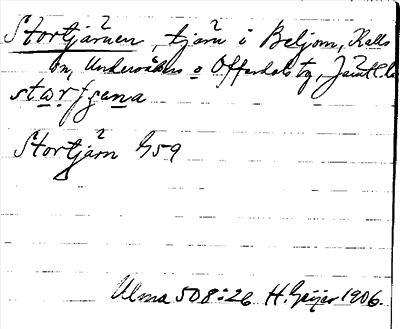 Stortjärnen, tjärn i Beljom, Kalls
sn, Undersåkers o Offerdals tg, Jämtl. l.
Stortjärn G59
Ulma 508:26 H. Geijer 1906.